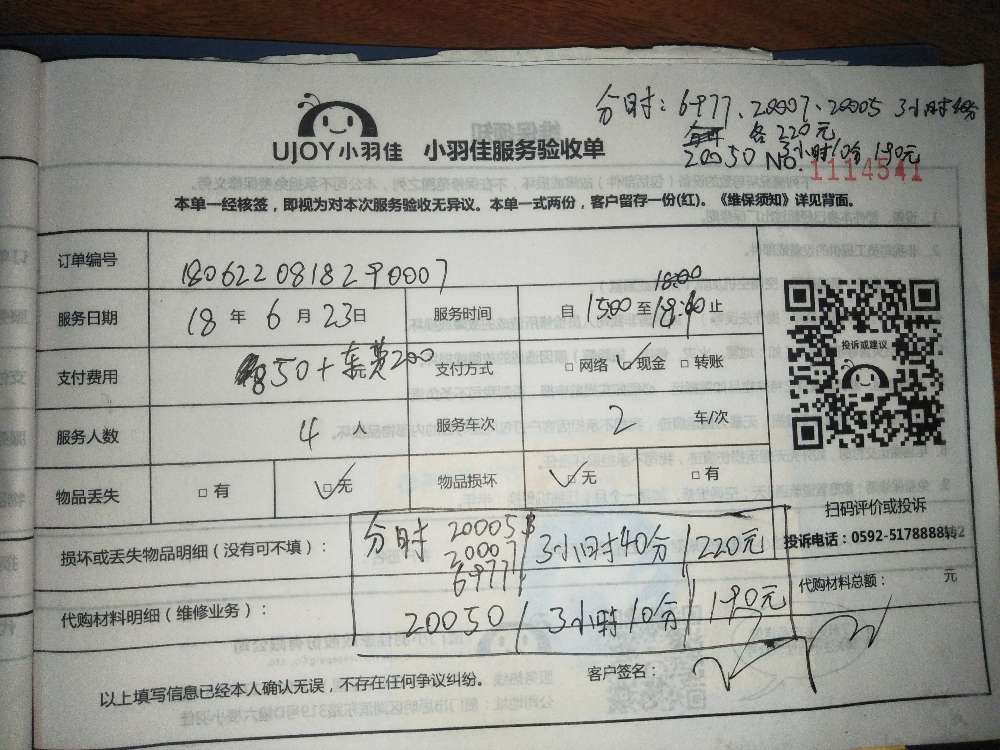 分时：6977、20007、20005 3小时40分
各220元
20050 3小时10分 190元
UJOY小羽佳 小羽佳服务验收单 No. 1114541
本单一经核签，即视为对本次服务验收无异议。本单一式两份，客户留存一份(红)。《维保须知》详见背面。
订单编号 1806220818290007
服务日期 18 年 6 月 23日 服务时间 自 15:00 至 18:40 止
18:00
支付费用 850+车费200 支付方式 □ 网络 ✓现金 □ 转账
投诉或建议
服务人数 4 人 服务车次 2 车/次
物品丢失 □ 有 ☑无 物品损坏 ☑无 □ 有
扫码评价或投诉
投诉电话：0592-5178888转2
损坏或丢失物品明细（没有可不填）： 分时 20005
20007 3小时40分 220元
6977
代购材料明细（维修业务）： 20050 3小时10分 190元
代购材料总额： 元
以上填写信息已经本人确认无误，不存在任何争议纠纷。 客户签名：